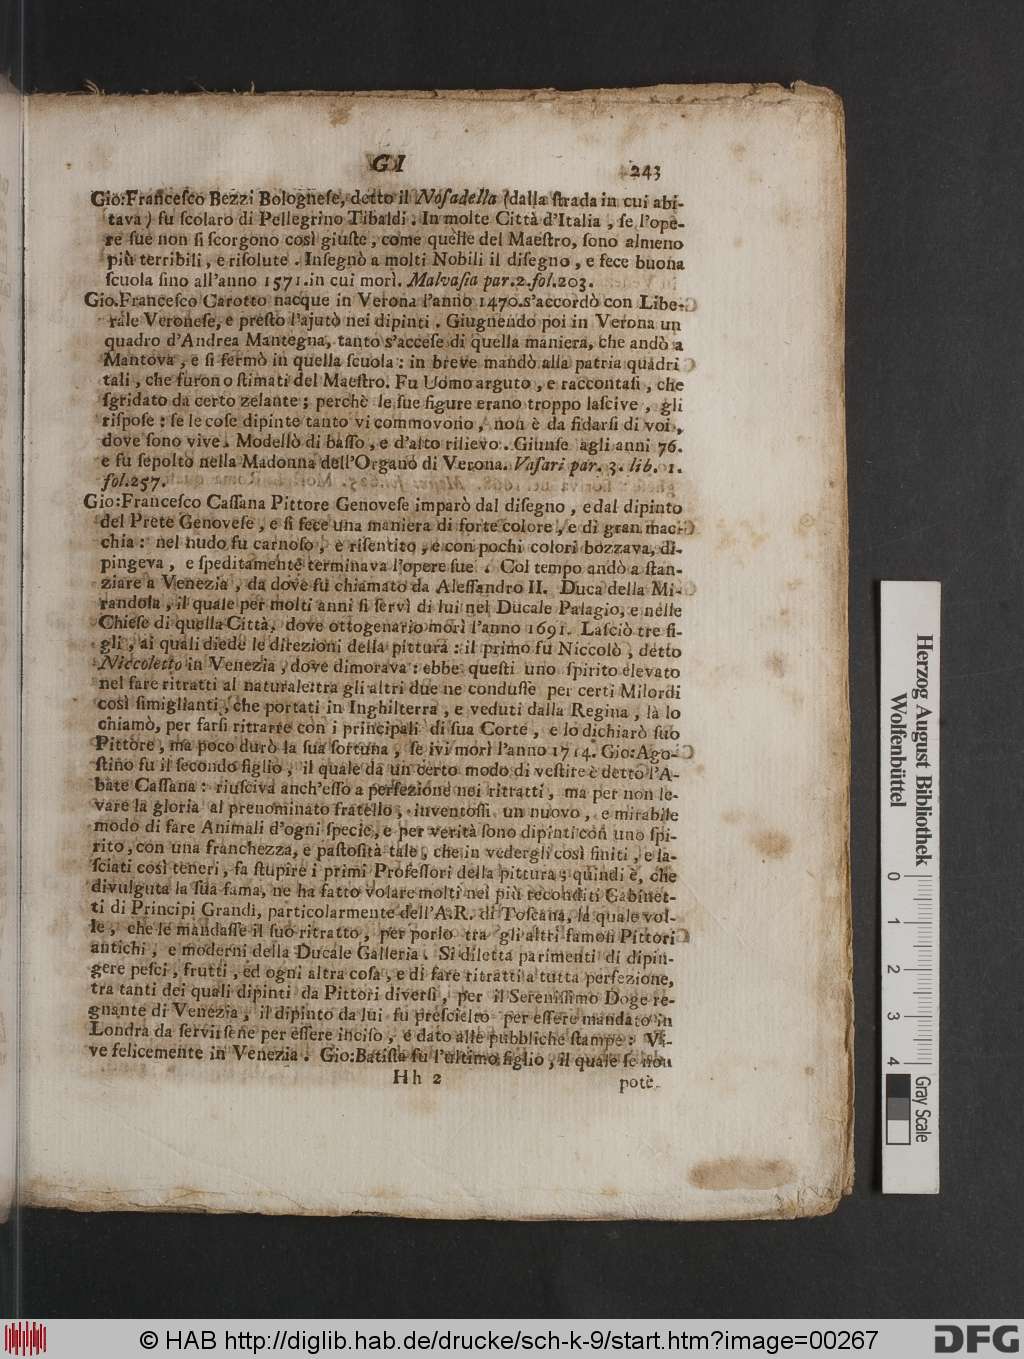 GI 243
Gio:Franceſco Bezzi Bologneſe, detto il Noſadella (dalla ſtrada in cui abi-
tava) fu ſcolaro di Pellegrino Tibaldi. In molte Città d'Italia, ſe l'ope-
re ſue non ſi ſcorgono così giuſte, come quelle del Maeſtro, ſono almeno
più terribili, e riſolute. Inſegnò a molti Nobili il diſegno, e fece buona
ſcuola ſino all'anno 1571. in cui morì. Malvaſia par.2. fol.203.
Gio.Franceſco Carotto nacque in Verona l'anno 1470. s'accordò con Libe-
rale Veroneſe, e preſto l'ajutò nei dipinti. Giugnendo poi in Verona un
quadro d'Andrea Mantegna, tanto s'acceſe di quella maniera, che andò a
Mantova, e ſi fermò in quella ſcuola: in breve mandò alla patria quadri
tali, che furono ſtimati del Maeſtro. Fu Uomo arguto, e raccontaſi, che
ſgridato da certo zelante; perchè le ſue figure erano troppo laſcive, gli
riſpoſe: ſe le coſe dipinte tanto vi commovono, non è da fidarſi di voi,
dove ſono vive. Modellò di baſſo, e d'alto rilievo. Giunſe agli anni 76.
e fu ſepolto nella Madonna dell'Organo di Verona. Vaſari par. 3. lib. 1.
fol.257.
Gio:Franceſco Caſſana Pittore Genoveſe imparò dal diſegno, e dal dipinto
del Prete Genoveſe, e ſi fece una maniera di forte colore, e di gran mac-
chia: nel nudo fu carnoſo, e riſentito, e con pochi colori bozzava, di-
pingeva, e ſpeditamente terminava l'opere ſue. Col tempo andò a ſtan-
ziare a Venezia, da dove fu chiamato da Aleſſandro II. Duca della Mi-
randola, il quale per molti anni ſi ſervì di lui nel Ducale Palagio, e nelle
Chieſe di quella Città, dove ottogenario morì l'anno 1691. Laſciò tre fi-
gli, ai quali diede le direzioni della pittura: il primo fu Niccolò, detto
Niccoletto in Venezia, dove dimorava: ebbe queſti uno ſpirito elevato
nel fare ritratti al naturale: tra gli altri due ne conduſſe per certi Milordi
così ſimiglianti, che portati in Inghilterra, e veduti dalla Regina, là lo
chiamò, per farſi ritrarre con i principali di ſua Corte, e lo dichiarò ſuo
Pittore, ma poco durò la ſua fortuna, ſe ivi morì l'anno 1714. Gio:Ago-
ſtino fu il ſecondo figlio, il quale da un certo modo di veſtire è detto l'A-
bate Caſſana: riuſciva anch'eſſo a perfezione nei ritratti, ma per non le-
vare la gloria al prenominato fratello, inventoſſi un nuovo, e mirabile
modo di fare Animali d'ogni ſpecie, e per verità ſono dipinti con uno ſpi-
rito, con una franchezza, e paſtoſità tale, che in vedergli così finiti, e la-
ſciati così teneri, fa ſtupire i primi Profeſſori della pittura; quindi è, che
divulguta la ſua fama, ne ha fatto volare molti nei più reconditi Gabinet-
ti di Principi Grandi, particolarmente dell'A.R. di Toſcana, la quale vol-
le, che le mandaſſe il ſuo ritratto, per porlo tra gli altri famoſi Pittori
antichi, e moderni della Ducale Galleria. Si diletta parimenti di dipin-
gere peſci, frutti, ed ogni altra coſa, e di fare ritratti a tutta perfezione,
tra tanti dei quali dipinti da Pittori diverſi, per il Sereniſſimo Doge re-
gnante di Venezia, il dipinto da lui fu preſcielto per eſſere mandato in
Londra da ſervirſene per eſſere inciſo, e dato alle pubbliche ſtampe: Vi-
ve felicemente in Venezia. Gio:Batiſta fu l'ultimo figlio, il quale ſe non
Hh 2 potè
Herzog August Bibliothek
Wolfenbüttel
0 1 2 3 4
Gray Scale
© HAB http://diglib.hab.de/drucke/sch-k-9/start.htm?image=00267
DFG